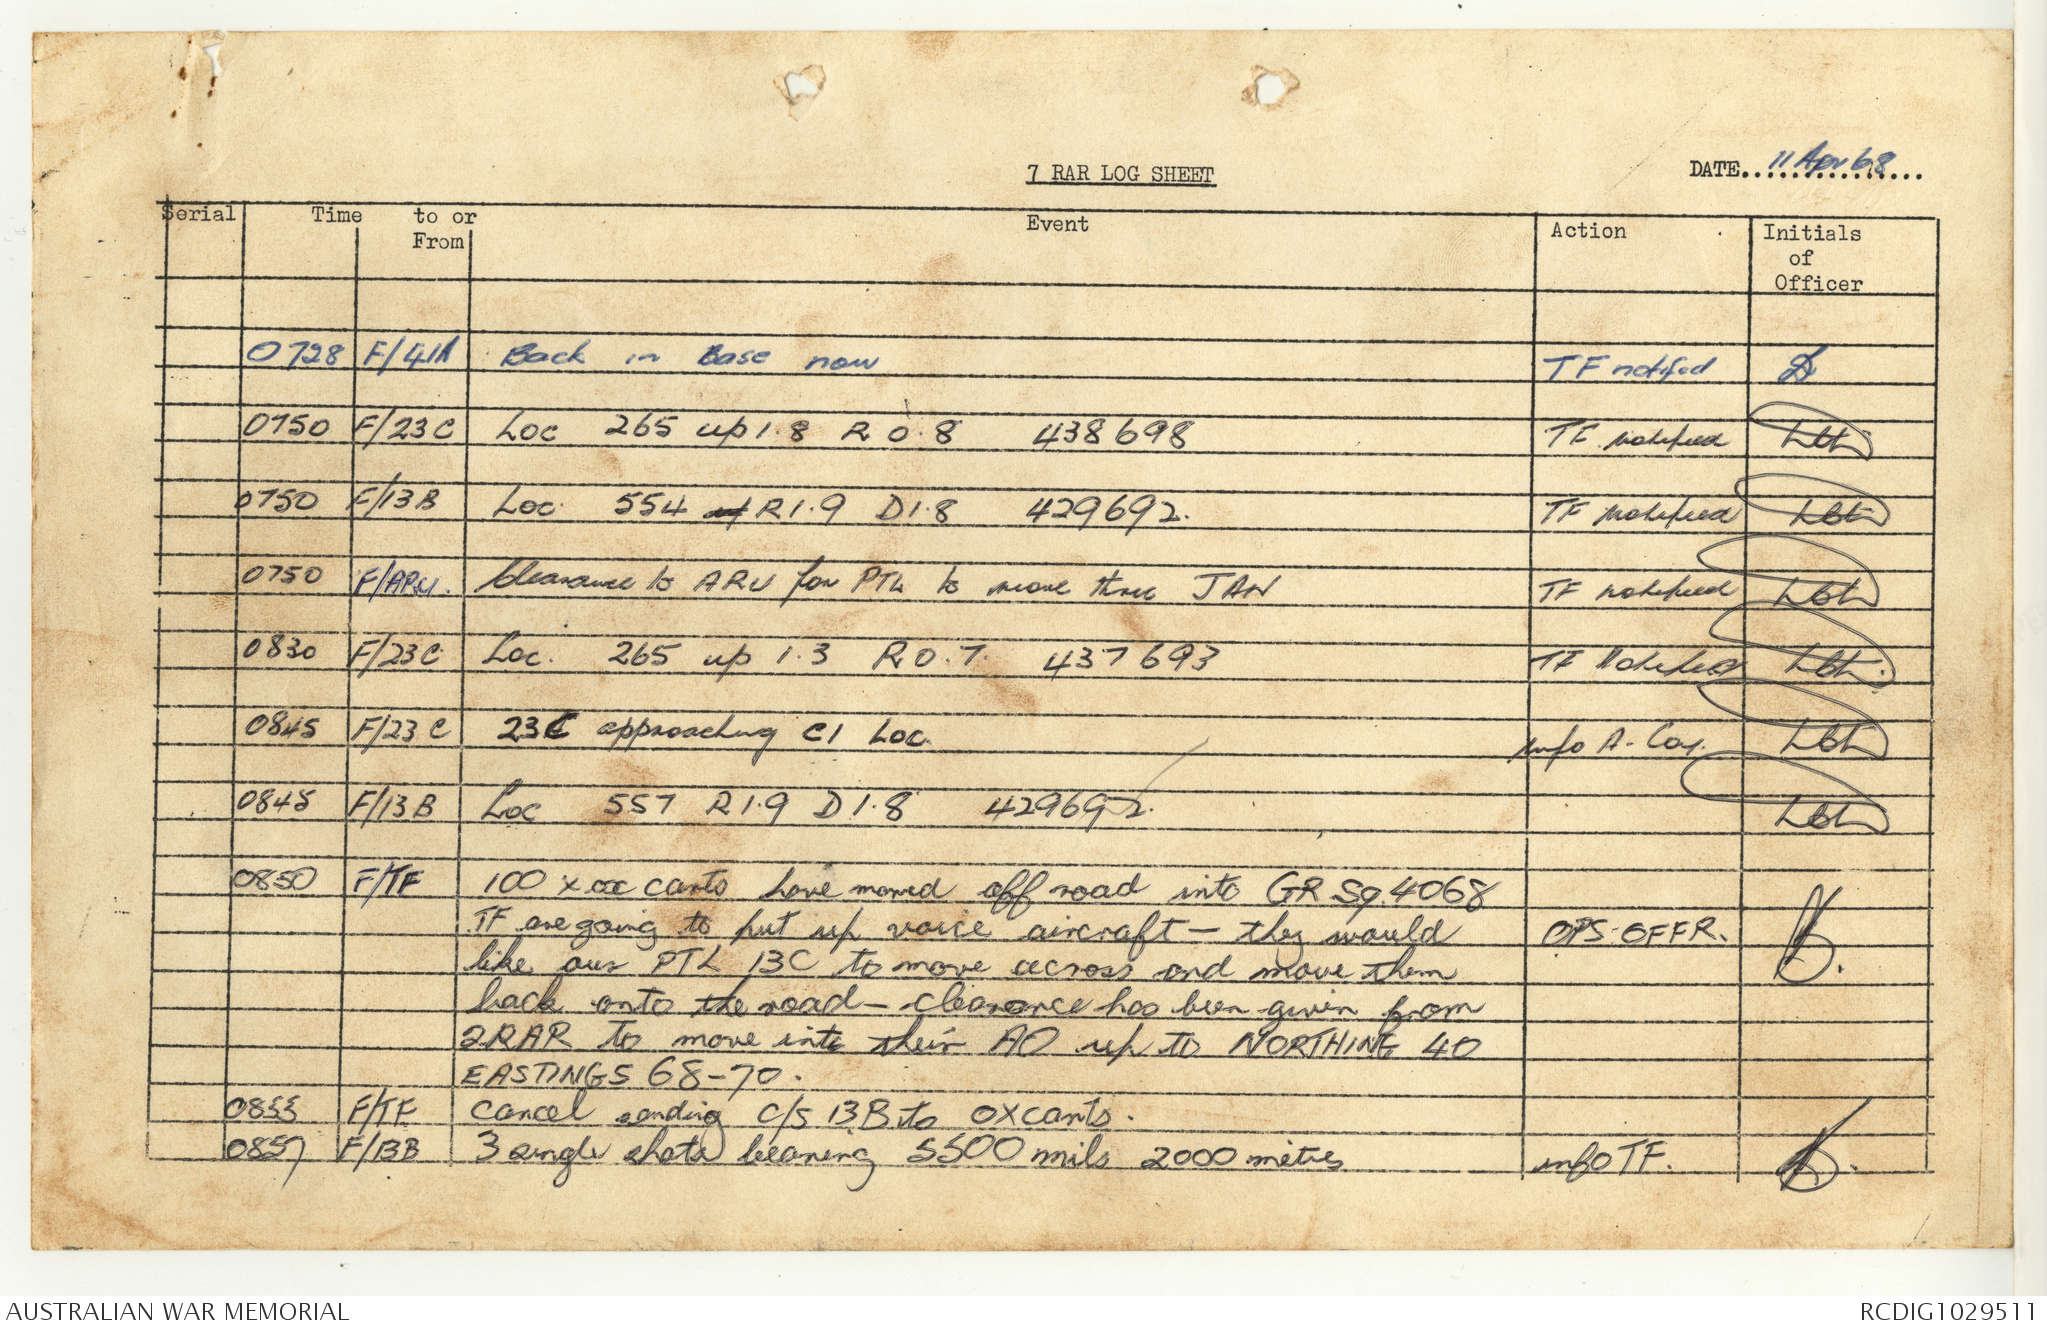 7 RAR LOG SHEET
DATE 11 Apr 68
Serial Time to or From Event Action Initials of Officer
0728 F/41A Back in Base now TF notified
0750 F/23C Loc 265 up 1.8 R 0.8 438698 TF notified
0750 F/13B Loc 554 R 1.9 D 1.8 429692. TF notified
0750 F/ARU. Clearance to ARU for PTL to move thru JAN TF notified
0830 F/23C Loc. 265 up 1.3 R 0.7. 437693 TF Notified
0845 F/23C 23C approaching C1 Loc. info A. Coy.
0845 F/13B Loc 557 R 1.9 D 1.8 429692.
0850 F/TF 100 x ox carts have moved off road into GR Sq 4068
TF are going to put up voice aircraft - they would OPS-OFFR.
like our PTL 13C to move across and move them
back onto the road - clearance has been given from
2RAR to move into their AO up to NORTHING 40
EASTINGS 68-70.
0855 F/TF Cancel sending C/S 13B to ox carts.
0857 F/13B 3 single shots bearing 5500 mils 2000 metres info TF.
AUSTRALIAN WAR MEMORIAL RCDIG1029511